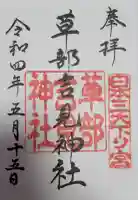 奉拝
日本三大下り宮
草部吉見神社
草部
神社
令和四年五月十五日